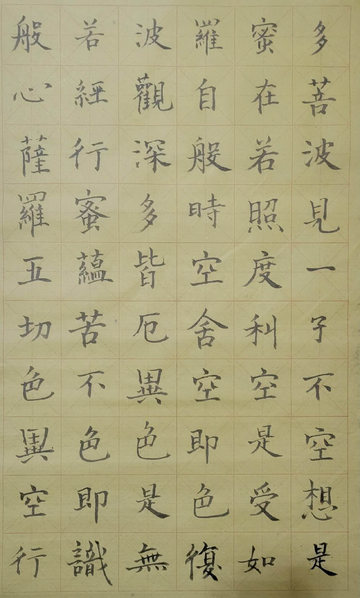 般若波羅蜜多
心經觀自在菩
薩行深般若波
羅蜜多時照見
五蘊皆空度一
切苦厄舍利子
色不異空空不
異色色即是空
空即是色受想
行識無復如是